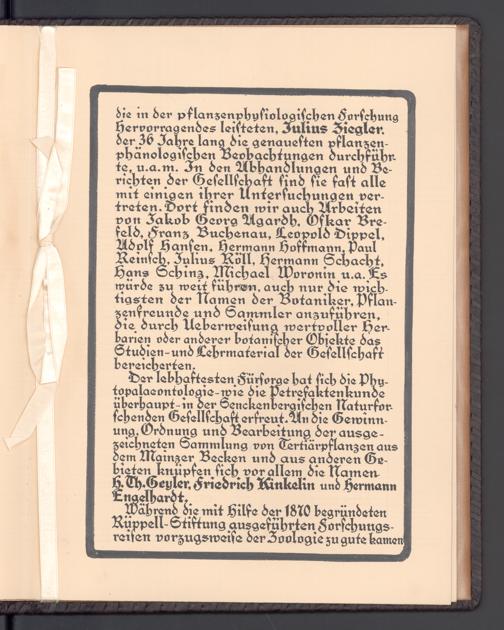 die in der pflanzenphysiologischen Forschung
Hervorragendes leisteten, Julius Ziegler,
der 36 Jahre lang die genauesten pflanzen-
phänologischen Beobachtungen durchführ-
te, u.a.m. In den Abhandlungen und Be-
richten der Gesellschaft sind sie fast alle
mit einigen ihrer Untersuchungen ver-
treten. Dort finden wir auch Arbeiten
von Jakob Georg Agardh, Oskar Bre-
feld, Franz Buchenau, Leopold Dippel,
Adolf Hansen, Hermann Hoffmann, Paul
Reinsch, Julius Röll, Hermann Schacht,
Hans Schinz, Michael Woronin u.a. Es
würde zu weit führen, auch nur die wich-
tigsten der Namen der Botaniker, Pflan-
zenfreunde und Sammler anzuführen,
die durch Ueberweisung wertvoller Her-
barien oder anderer botanischer Objekte das
Studien- und Lehrmaterial der Gesellschaft
bereicherten.
Der lebhaftesten Fürsorge hat sich die Phy-
topalaeontologie - wie die Petrefaktenkunde
überhaupt - in der Senckenbergischen Naturfor-
schenden Gesellschaft erfreut. An die Gewinn-
ung, Ordnung und Bearbeitung der ausge-
zeichneten Sammlung von Tertiärpflanzen aus
dem Mainzer Becken und aus anderen Ge-
bieten knüpfen sich vor allem die Namen
H. Th. Geyler, Friedrich Kinkelin und Hermann
Engelhardt.
Während die mit Hilfe der 1870 begründeten
Rüppell-Stiftung ausgeführten Forschungs-
reisen vorzugsweise der Zoologie zu gute kamen